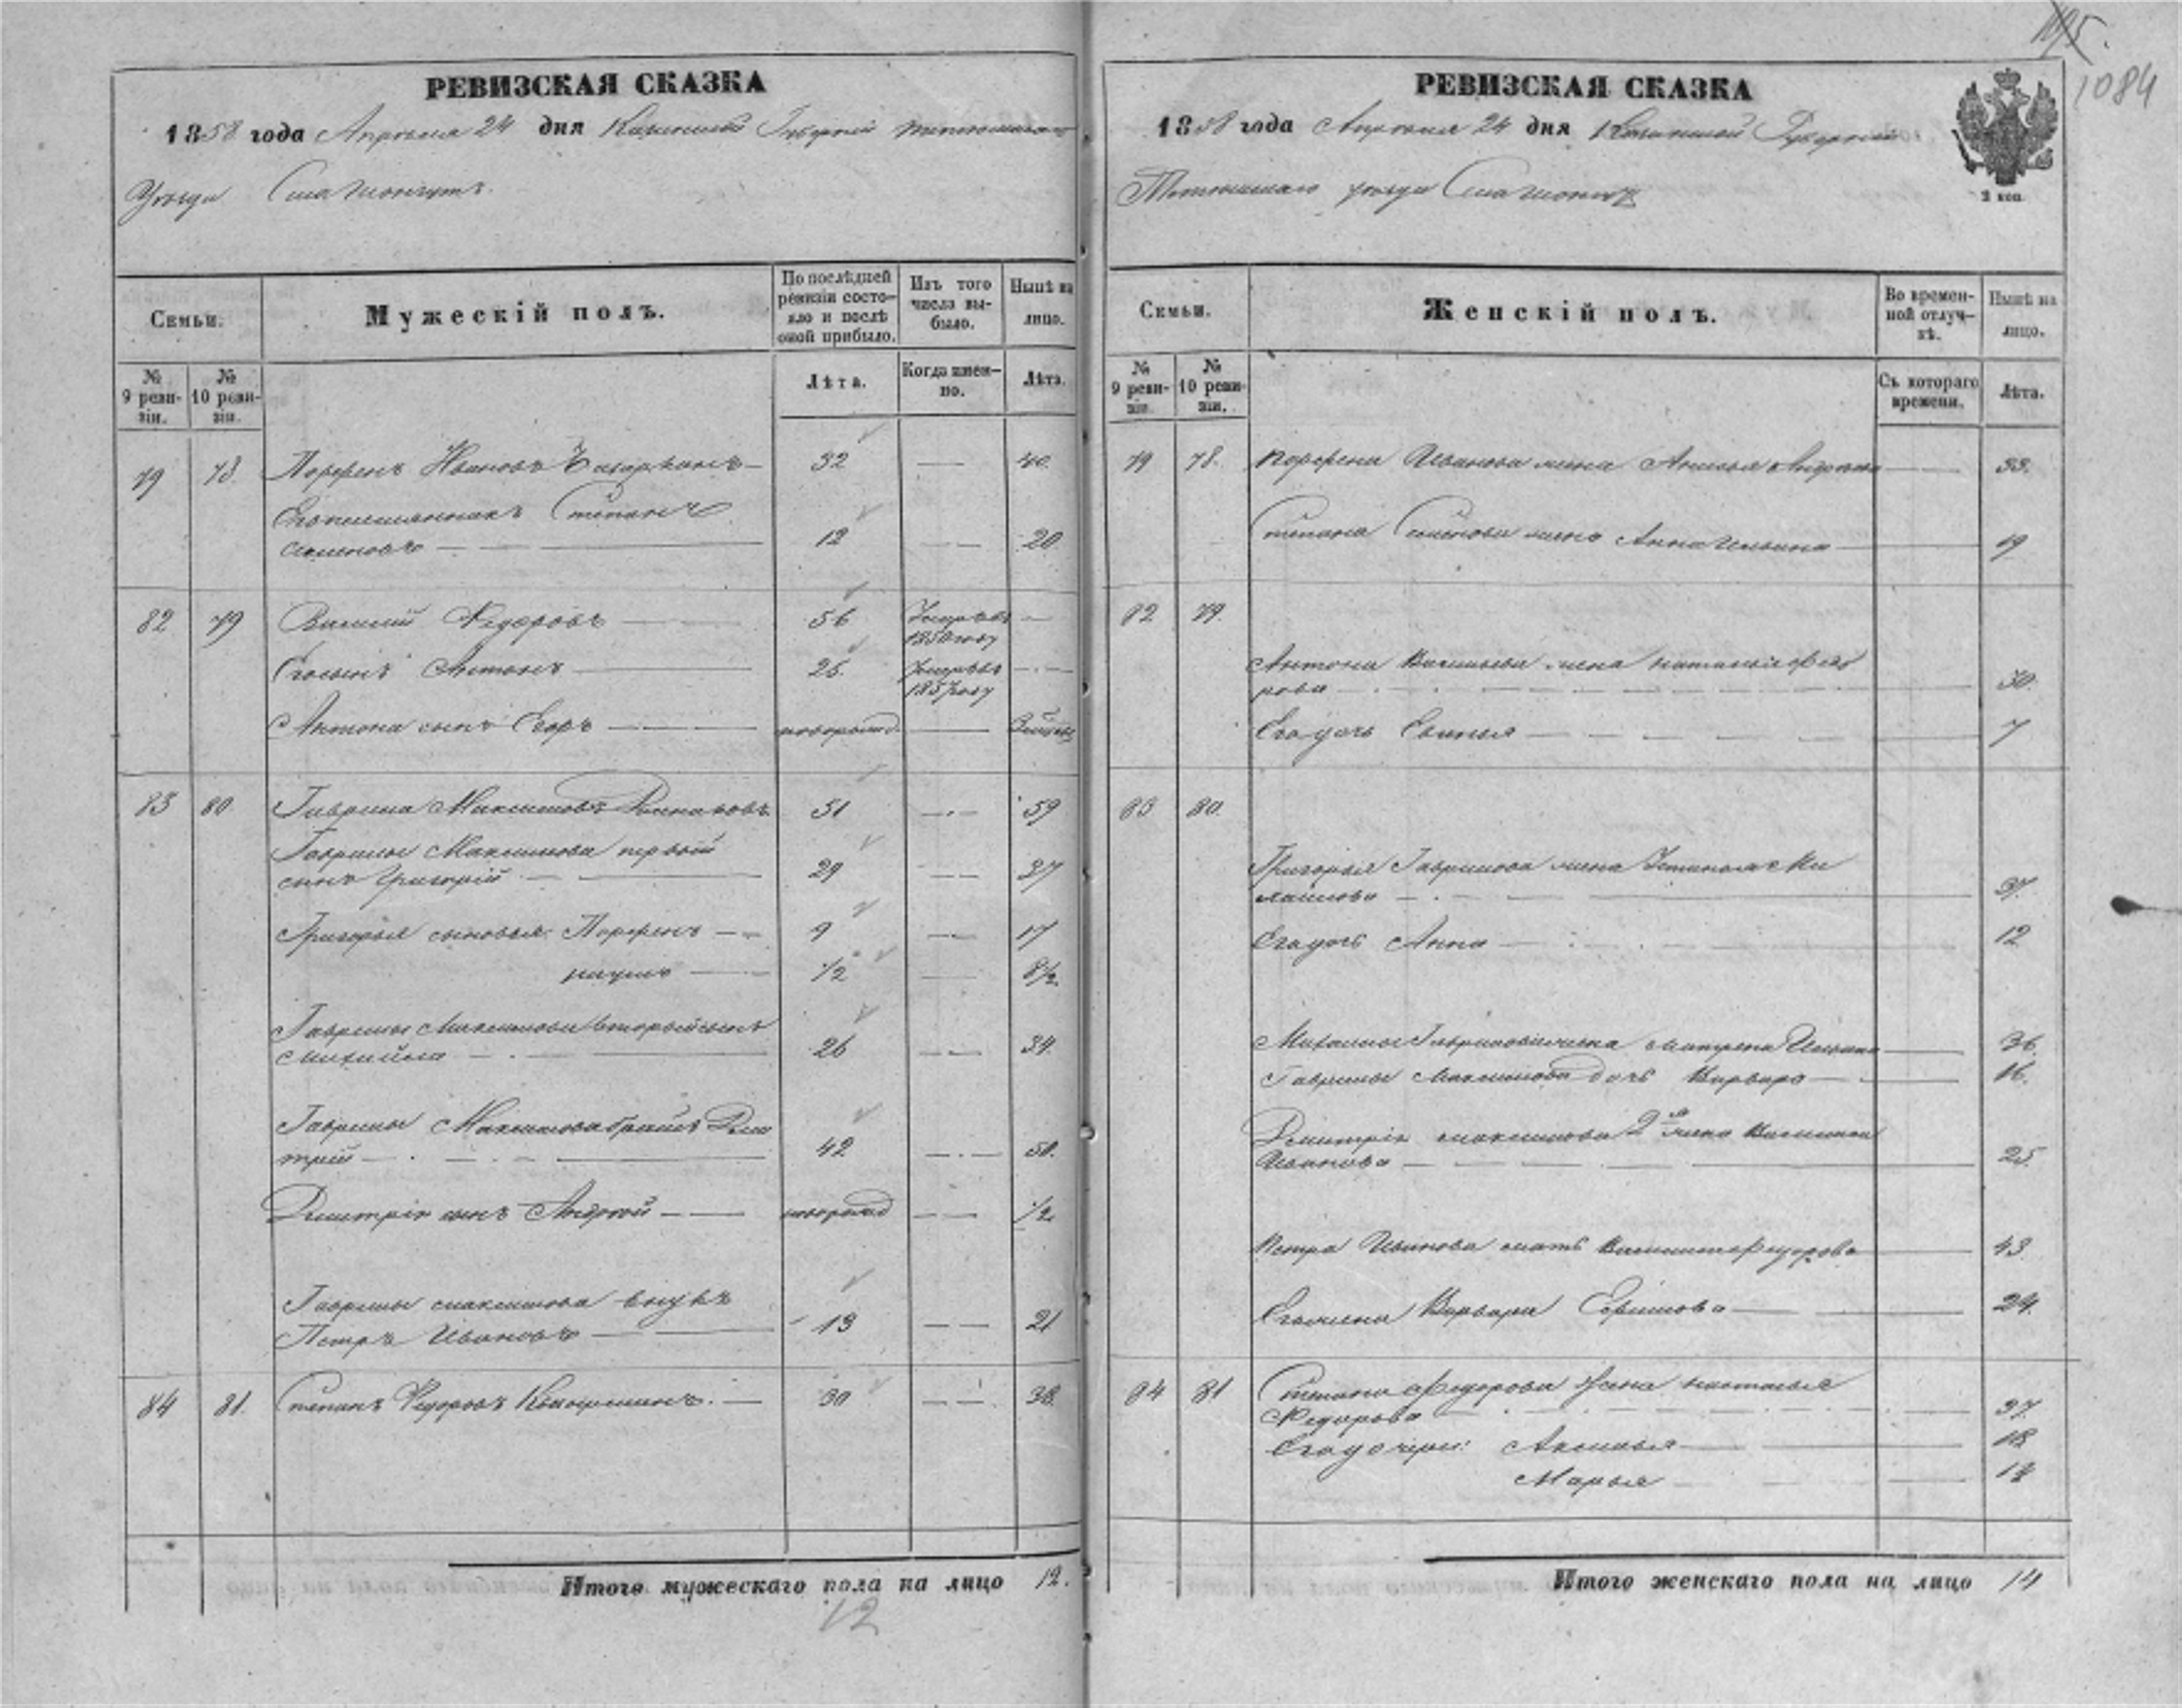 195.
1084
РЕВИЗСКАЯ СКАЗКА
1858 года Апреля 24 дня Казанской Губернии Тетюшскаго
Уезда Села
Семьи.
Мужескій полъ.
По послѣдней ревизіи состояло и послѣ оной прибыло.
Изъ того числа выбыло.
Нынѣ на лицо.
№ 9 ревизіи.
№ 10 ревизіи.
Лѣта.
Когда именно.
Лѣта.
79 78. Порфенъ Ивановъ — 32 — 40.
Его племянникъ Степанъ
Семеновъ — 12 — 20
82 79 Василий Федоровъ — 56 Умеръ въ 1850 году —
Его сынъ Антонъ — 25. Умеръ въ 1857 году —
Антона сынъ Егоръ — новорожд —
83 80 Гаврила Максимовъ 51 — 59
Гаврилы Максимова первый
сынъ Григорий — 29 — 37
Григорья сыновья Порфенъ — 9 — 17
— 1/2 — 8 1/2
Гаврилы Максимова вторый сынъ
Михайла — 26 — 34.
Гаврилы Максимова братъ Дми
трий — 42 — 50.
Дмитрия сынъ Андрей — новорожд — 1/2
Гаврилы Максимова внукъ
Петръ Ивановъ — 13 — 21
84 81. Степанъ Федоровъ — 30 — 38.
Итого мужескаго пола на лицо 12.
12
РЕВИЗСКАЯ СКАЗКА
1858 года Апреля 24 дня Казанской Губернии
Тетюшскаго уезда Села
2 коп.
Семьи.
Женскій полъ.
Во временной отлучкѣ.
Нынѣ на лицо.
№ 9 ревизіи.
№ 10 ревизіи.
Съ котораго времени.
Лѣта.
79 78. Порфена Иванова жена — 33.
Степана Семенова жена Анна Иванова — 19
82 79.
Антона Васильева жена Наталия Федо
рова — 30.
Его дочь — 7
83 80.
Григорья Гаврилова жена Устинья Ми
хайлова — 37.
Его дочь Анна — 12
Михайлы Гаврилова жена Матрена Иванова — 36.
Гаврилы Максимова дочь Варвара — 16.
Дмитрия Максимова 2я жена Василиса
Иванова — 25.
Петра Иванова мать Василиса Федорова — 43
Его жена Варвара Ефимова — 24.
84 81 Степана Федорова Жена Наталья
Федорова — 37.
Его дочери: — 18
Марья — 12
Итого женскаго пола на лицо 14